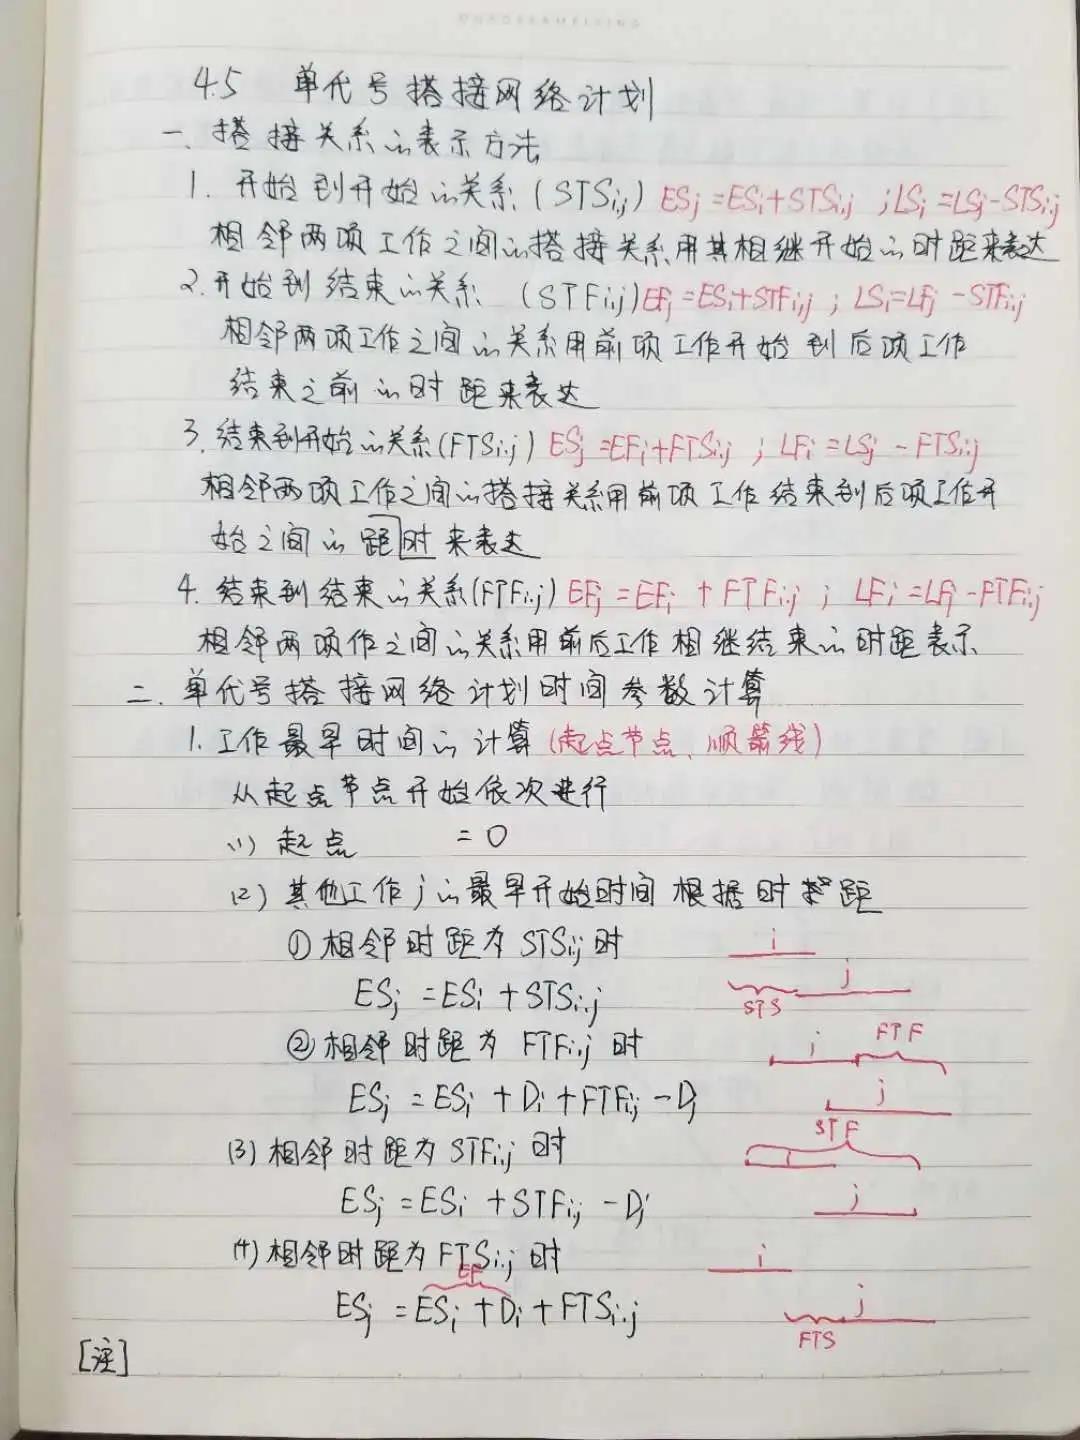 4.5 单代号搭接网络计划
一、搭接关系的表示方法
1. 开始到开始的关系(STSi,j) ESj=ESi+STSi,j ;LSi=LSj-STSi,j
相邻两项工作之间的搭接关系用其相继开始的时距来表达
2.开始到结束的关系 (STFi,j)EFj=ESi+STFi,j ; LSi=LFj-STFi,j
相邻两项工作之间的关系用前项工作开始到后项工作
结束之前的时距来表达
3.结束到开始的关系(FTSi,j) ESj=EFi+FTSi,j ; LFi=LSj-FTSi,j
相邻两项工作之间的搭接关系用前项工作结束到后项工作开
始之间的距时来表达
4. 结束到结束的关系(FTFi,j) EFj=EFi+FTFi,j ; LFi=LFj-FTFi,j
相邻两项作之间的关系用前后工作相继结束的时距表示
二、单代号搭接网络计划时间参数计算
1.工作最早时间的计算(起点节点、顺箭线)
从起点节点开始依次进行
(1) 起点 =0
(2) 其他工作j的最早开始时间根据时距
①相邻时距为STSi,j时
i
ESj=ESi+STSi,j
j
STS
②相邻时距为FTFi,j时
i FTF
ESj=ESi+Di+FTFi,j-Dj
j
(3)相邻时距为STFi,j时
STF
i
ESj=ESi+STFi,j-Dj
j
(4)相邻时距为FTSi,j时
i
EF
ESj=ESi+Di+FTSi,j
j
FTS
[注]